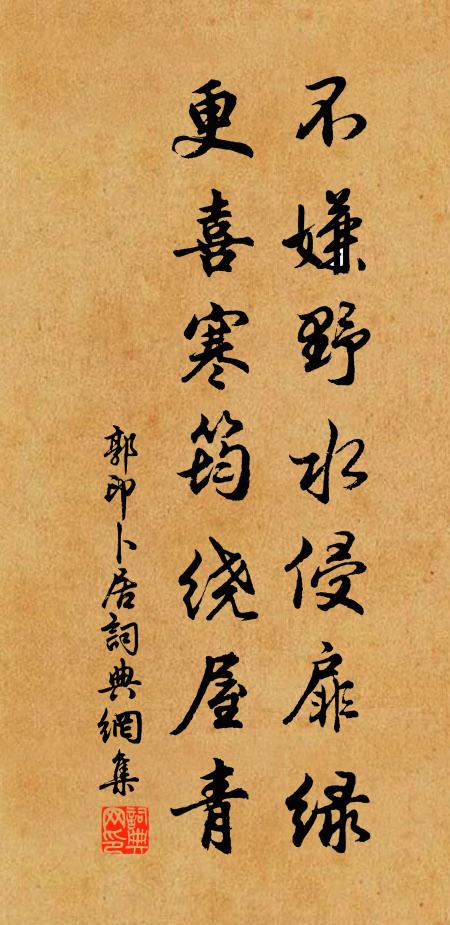 不嫌野水侵扉绿
更喜寒筠绕屋青
郭印卜居詞典網集
詞典网印